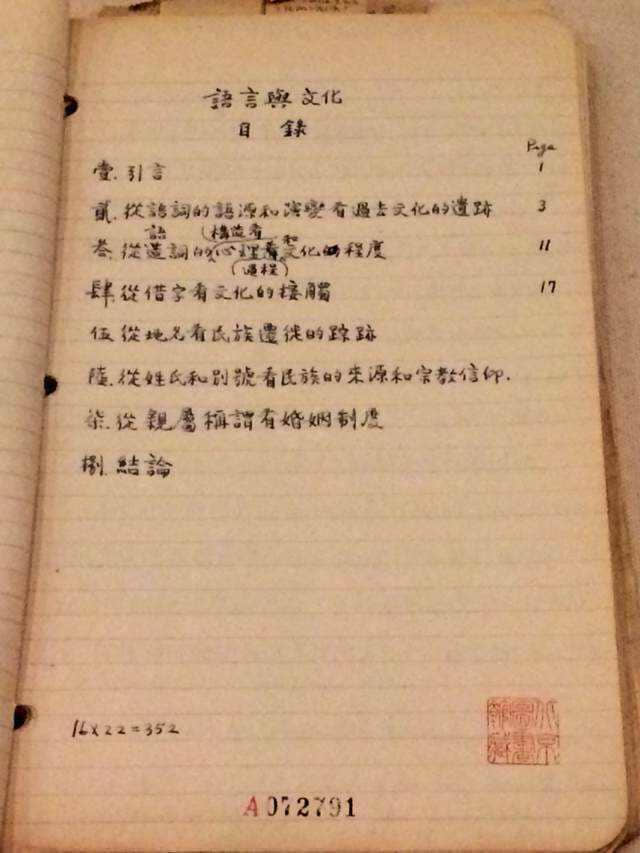 語言與文化
目錄
Page
壹. 引言 1
貳. 從語詞的語源和演變看過去文化的遺跡 3
語 構造看 和
叁. 從造詞的心理看文化的程度 11
(過程)
肆. 從借字看文化的接觸 17
伍 從地名看民族遷徙的踪跡
陸. 從姓氏和別號看民族的來源和宗教信仰.
柒. 從親屬稱謂看婚姻制度
捌. 結論
16×22=352
A072791